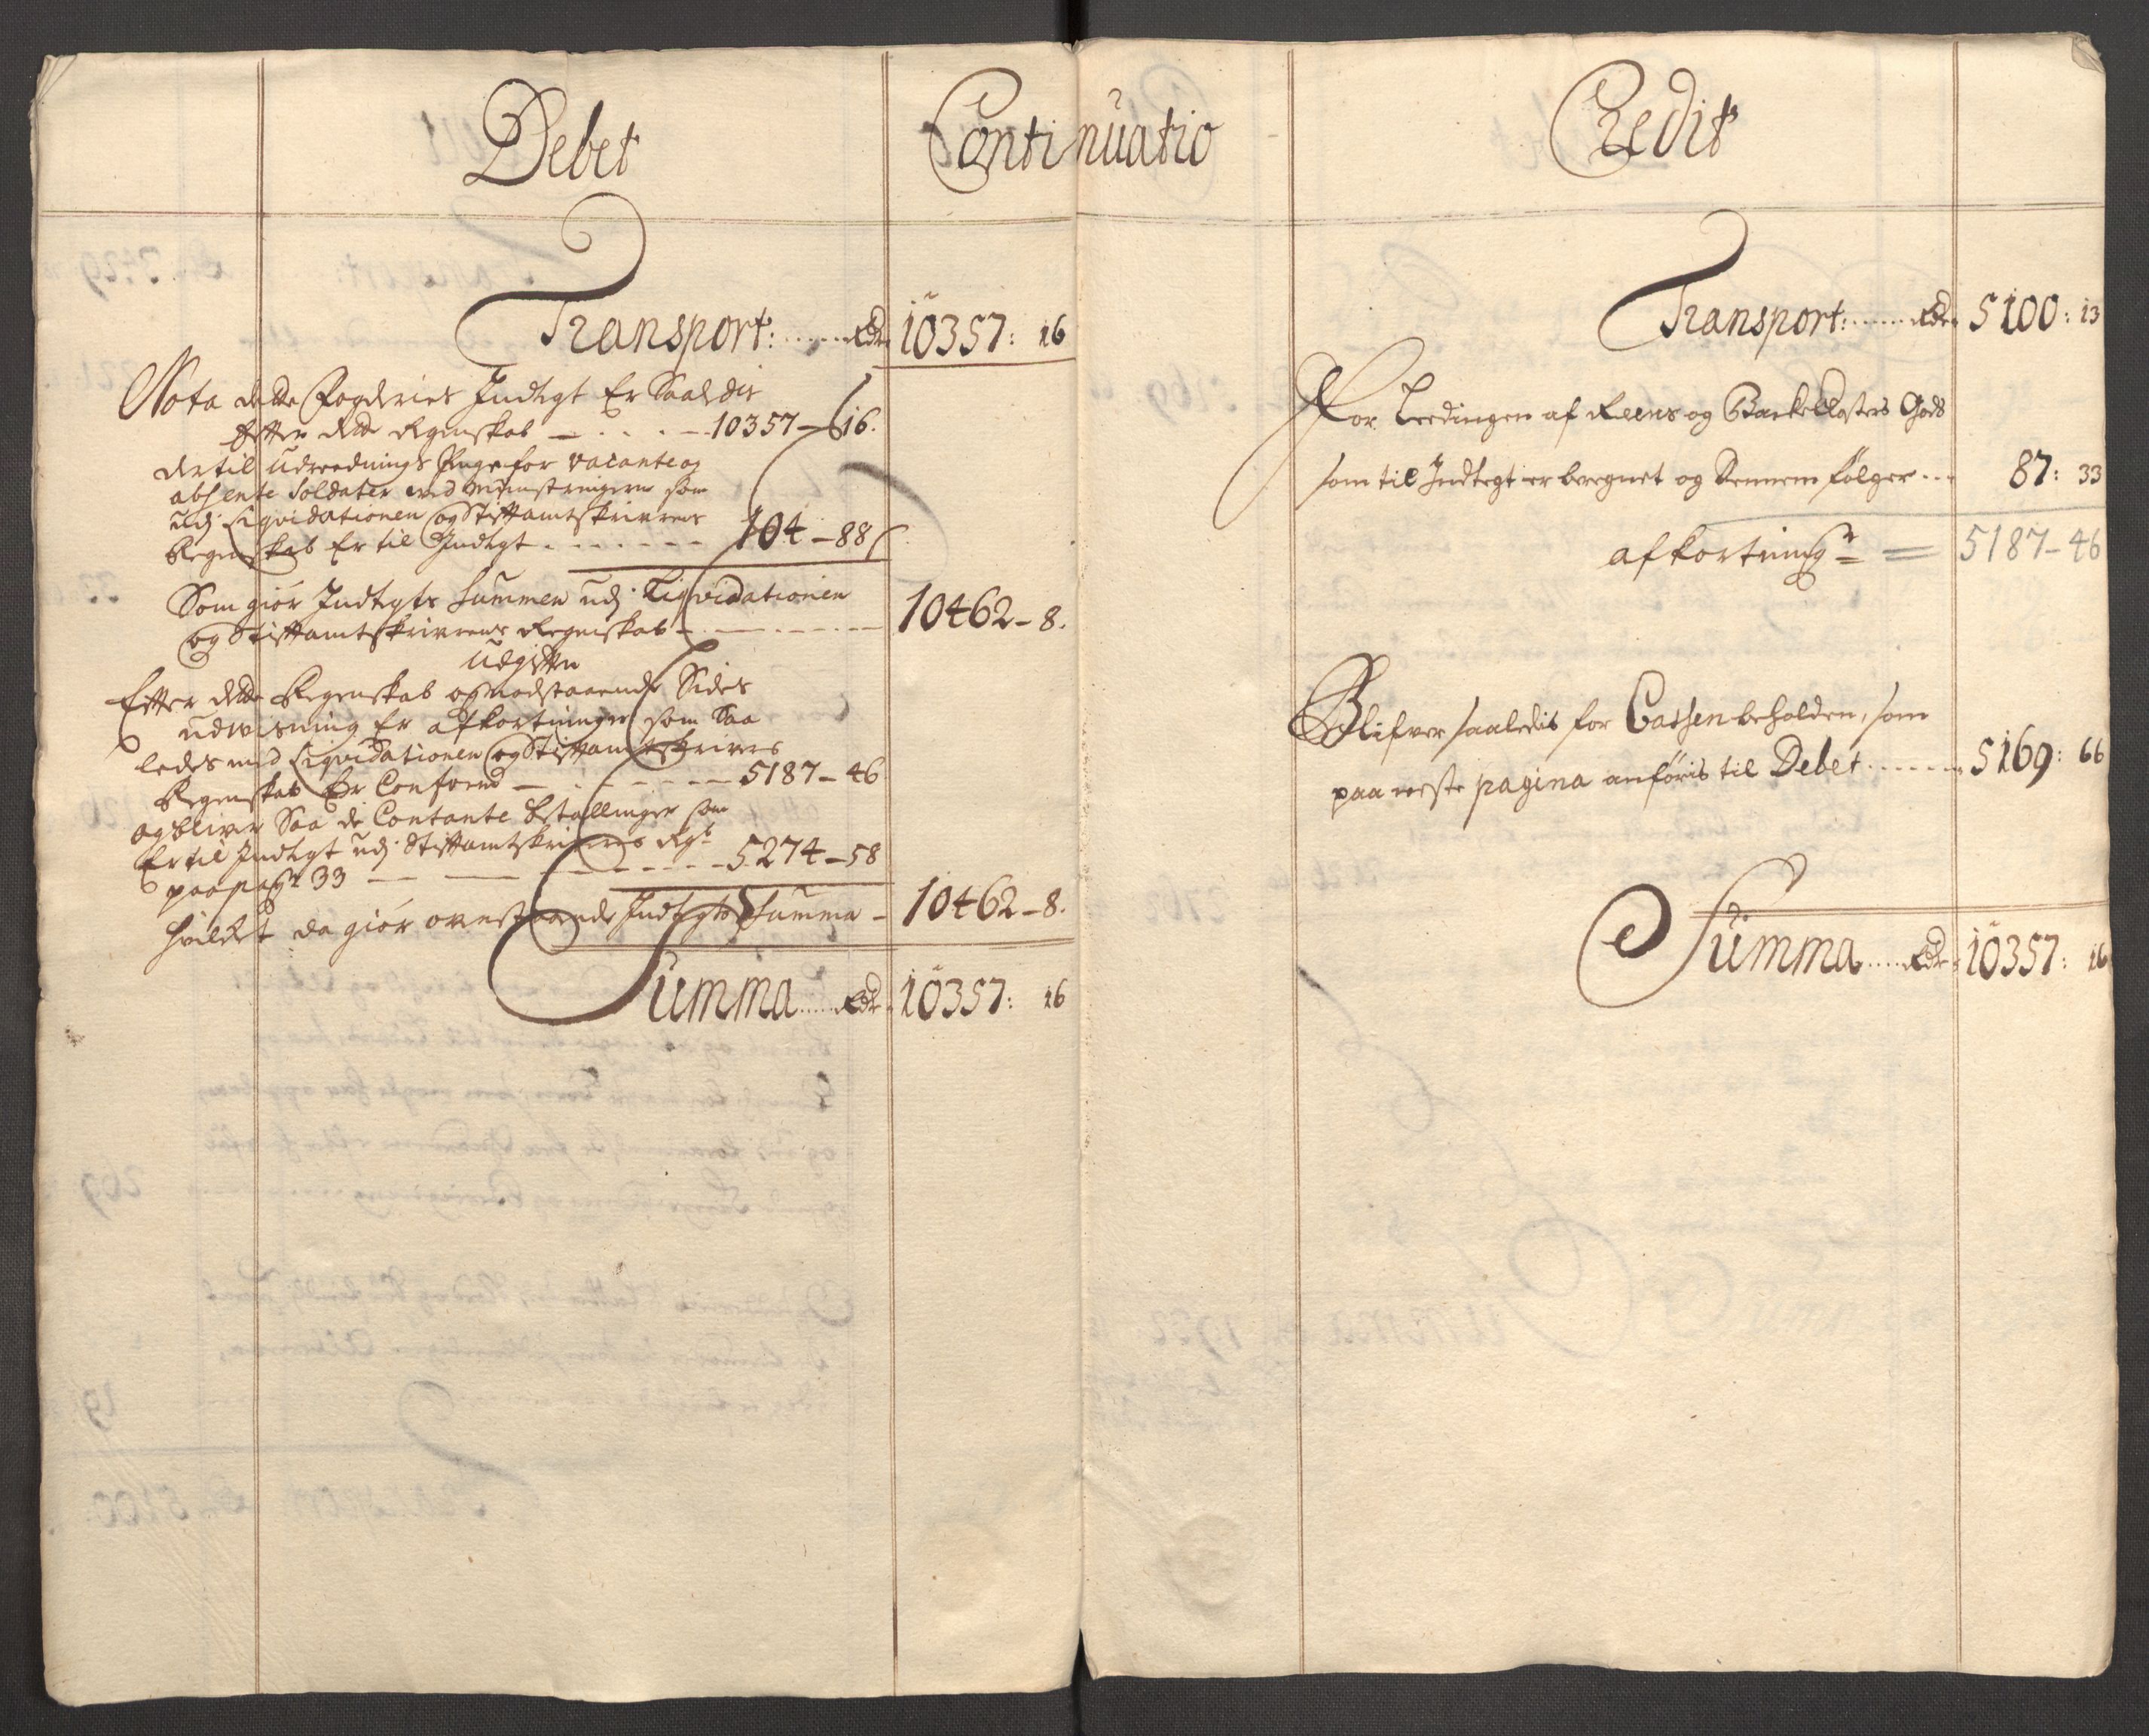 Debet
Continuatio
Credit
Transport: ...... Rdr 10357: 16
Nota dette Fogderies Indtegt Er Saaledis
Efter dette Regenskab — . . . — 10357 — 16.
dertil Udreednings Penge for vacante og
absente Soldater ved Mynstringerne som
udj Liqvidationen og Stiftamtskrivrens
Regenskab Er til Indtegt . - - - - - - 104 — 88
Som giør Indtegts Summen udj Liqvidationen
og Stiftamtskrivrens Regenskab - — - — 10462 — 8.
Udgiften
Efter dette Regenskab og modstaaende Sides
udvisning Er afkortninger som Saa
ledes med Liqvidationen og Stiftamtskrivrens
Regenskab Er Conform — - - - - 5187 — 46
og bliver Saa de Contante betallinger som
Er til Indtegt udj Stiftamtskrivrens Rgb
paa pag: 33 — — — - - - - 5274 — 58
hvilket da giør ovenstaaende Indtegts Summa — 10462 — 8.
Summa ..... Rdr 10357: 16
Transport: ...... Rdr 5100: 13
For Leedingen af Reens og Backe Closters Gods
som til Indtegt er beregnet og dennem følger ... 87: 33
afkortning = 5187 — 46
Blifver saaledis for Cassen beholden, som
paa neste pagina anføris til Debet ...... 5169: 66
Summa .... Rdr 10357: 16